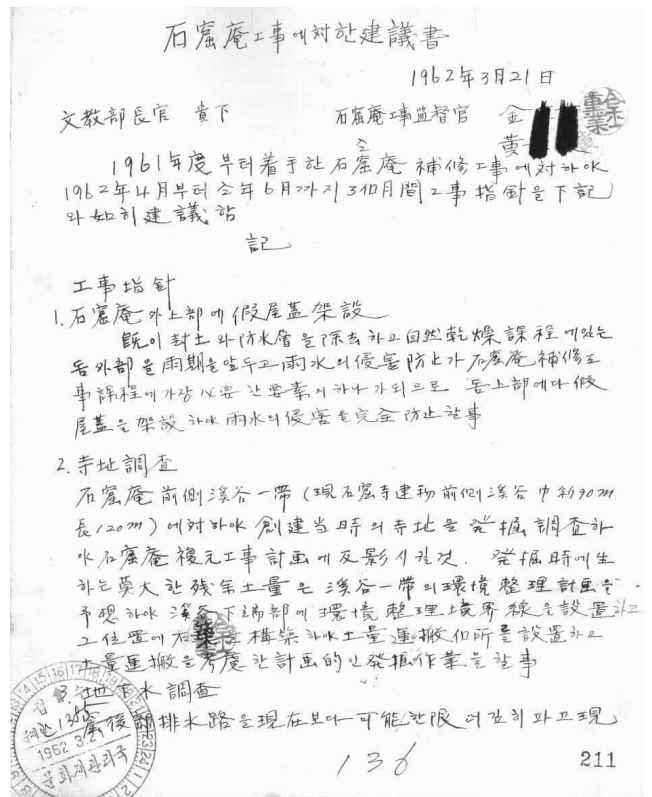 石窟庵工事에對한建議書
1962年3月21日
文敎部長官 貴下 石窟庵工事監督官 金
黃
1961年度부터着手한石窟庵補修工事에対하야
1962年4月부터仝年6月까지3個月間工事指針을下記
와如히建議함
記
工事指針
1. 石窟庵外上部에假屋蓋架設
旣이封土와防水層을除去하고自然乾燥課程에있는
동外部을雨期을앞두고雨水의侵害防止가石窟庵補修工
事課程에가장必要한要素의하나가되므로 동上部에다假
屋蓋을架設하야雨水의侵害을完全防止할事
2. 寺址調査
石窟庵前側溪谷一帶(現石窟寺建物前側溪谷巾約90m
長120m)에対하야創建当時의寺址을発掘調査하
야石窟庵複元工事計画에反影시킬것. 発掘時에生
하는莫大한残余土量은溪谷一帶의環境整理計画을
予想하야溪谷下端部에環境整理境界線을設置하고
그位置에石 構築하야土量運搬 所를設置하고
土量運搬을考慮한計画的인発掘作業을할事
3. 地下水調査
窟後部排水路을現在보다可能한限더깊히파고現
접수
1962 3
문화재관리국
136
211